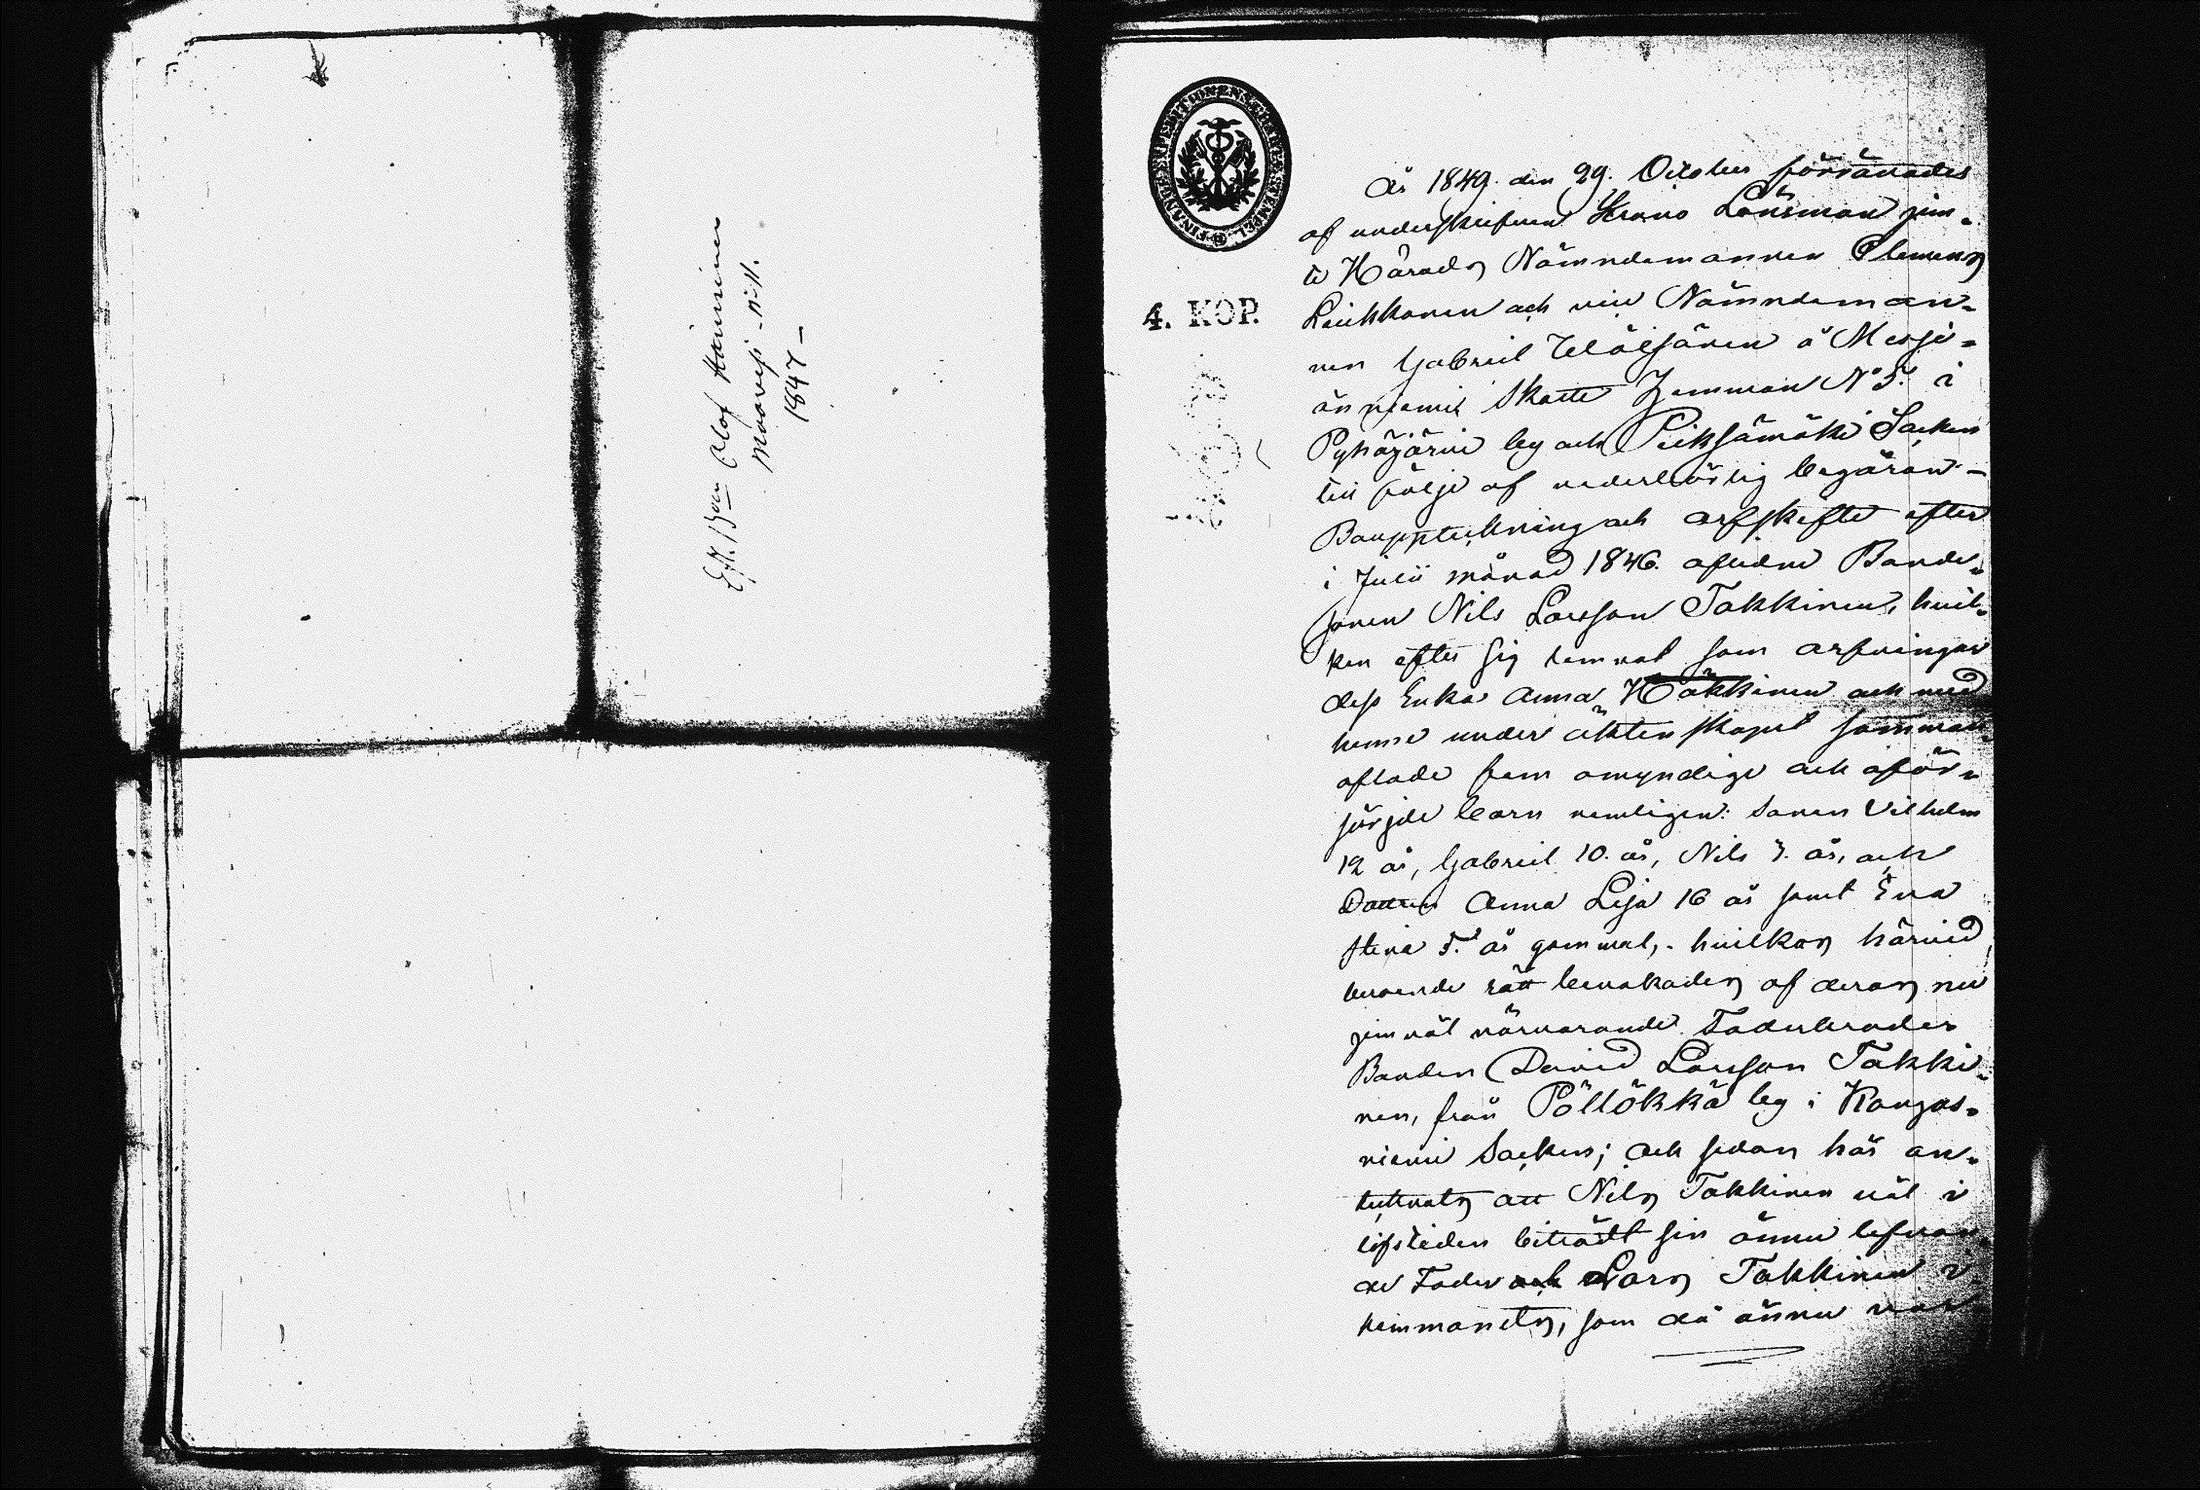 Eft. Bon Olof Hänninen
Maavesi N: 11.
1847 –
FINANCE EXPEDITIONENS CHARTÆ STEMPEL
4. KOP.
År 1849 den 29. October förrättades
af underskrifven Krono Länsman jem-
te Härads Nämndemannen Clemens
Liukkonen och vice Nämndeman-
nen Gabriel Teläsjänen å Marje-
änniemi Skatte Hemman N° 5. i
Pyhäjärvi by och Pieksämäki Socken
till följe af vederbörlig begäran –
Bouppteckning och arfskifte efter
i Julii månad 1846. aflidne Bonde-
sonen Nils Larsson Takkinen, hvil-
ken efter sig lemnat som arfvingar
dess Enka Anna Häkkinen och med
henne under äktenskapet samman-
aflade fem omyndige och oför-
sörjde barn nemligen: Sonen Vilhelm
12 år, Gabriel 10. år, Nils 7. år, och
Dottren Anna Lisa 16 år samt Eva
Stina 5. år gammal, hvilkas härvid
beroende rätt bevakades af deras nu
jemväl närvarande Faderbroder
Bonden David Larsson Takki-
nen, från Pöllökkä by i Kangas-
niemi Socken; och sedan här an-
tecknats att Nils Takkinen väl i
lifstiden biträdt sin ännu lefvan-
de Fader Lars Takkinen i
hemmanets, som då ännu var